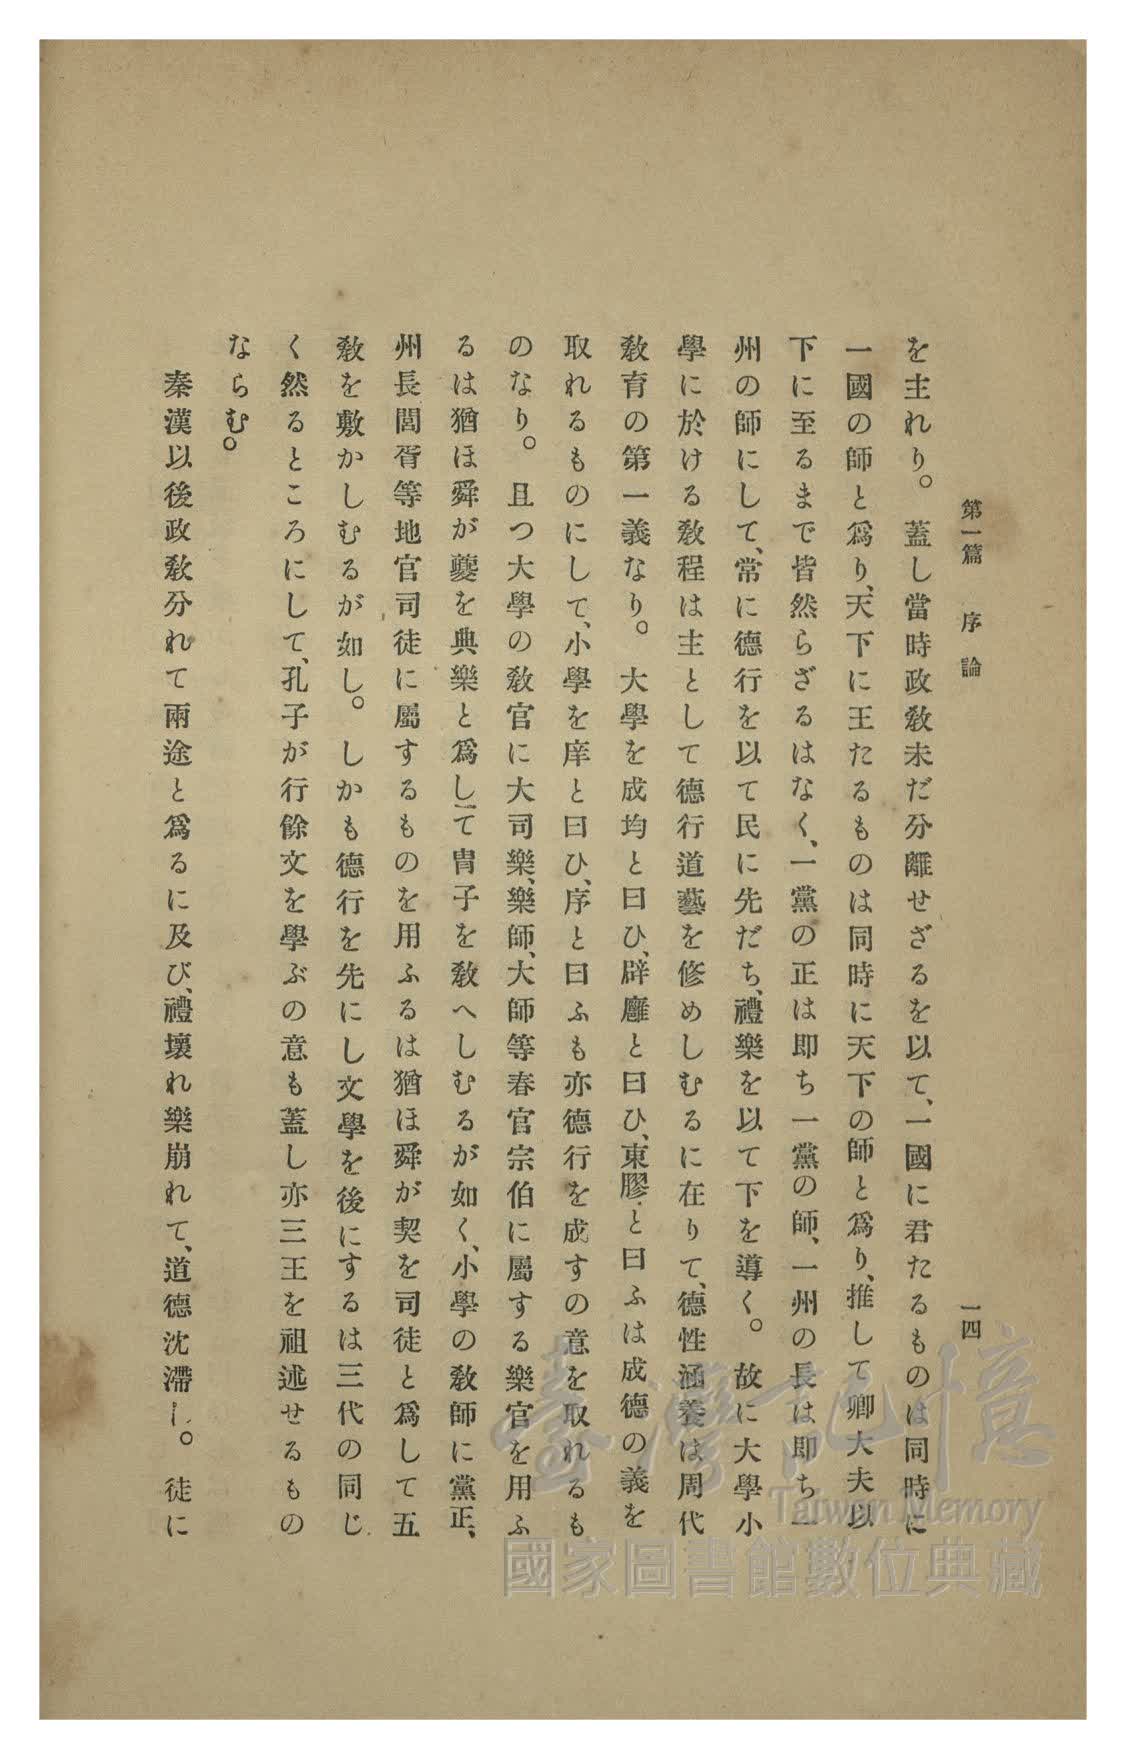 第一篇　序論　一四
を主れり。蓋し當時政敎未だ分離せざるを以て、一國に君たるものは同時に
一國の師と爲り、天下に王たるものは同時に天下の師と爲り、推して卿大夫以
下に至るまで皆然らざるはなく、一黨の正は卽ち一黨の師、一州の長は卽ち一
州の師にして、常に德行を以て民に先だち、禮樂を以て下を導く。故に大學小
學に於ける敎程は主として德行道藝を修めしむるに在りて、德性涵養は周代
敎育の第一義なり。大學を成均と曰ひ、辟廱と曰ひ、東膠と曰ふは成德の義を
取れるものにして、小學を庠と曰ひ、序と曰ふも亦德行を成すの意を取れるも
のなり。且つ大學の敎官に大司樂、樂師、大師等春官宗伯に屬する樂官を用ふ
るは猶ほ舜が夔を典樂と爲して冑子を敎へしむるが如く、小學の敎師に黨正、
州長閭胥等地官司徒に屬するものを用ふるは猶ほ舜が契を司徒と爲して五
敎を敷かしむるが如し。しかも德行を先にし文學を後にするは三代の同じ
く然るところにして、孔子が行餘文を學ぶの意も蓋し亦三王を祖述せるもの
ならむ。
秦漢以後政敎分れて兩途と爲るに及び、禮壞れ樂崩れて、道德沈滯し。徒に
臺灣記憶
Taiwan Memory
國家圖書館數位典藏